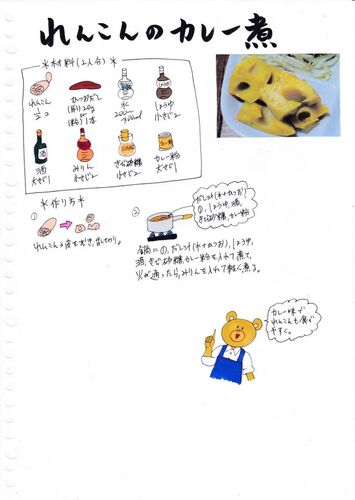 れんこんのカレー煮
＊材料(2人分)＊
れんこん
2コ
かつおだし
1本
水
200cc
しょうゆ
小さじ2
酒
大さじ1
みりん
小さじ2
きび砂糖
小さじ2
カレー粉
大さじ1
＊作り方＊
①
れんこんは皮をむき、乱切り。
②
だし汁(水+かつお)
①、しょうゆ、酒、
きび砂糖、カレー粉
鍋に①、だし汁(水+かつお)、しょうゆ、
酒、きび砂糖、カレー粉を入れて煮て、
火が通ったら、みりんを入れて軽く煮る。
カレー味で
れんこんも食べ
やすく。